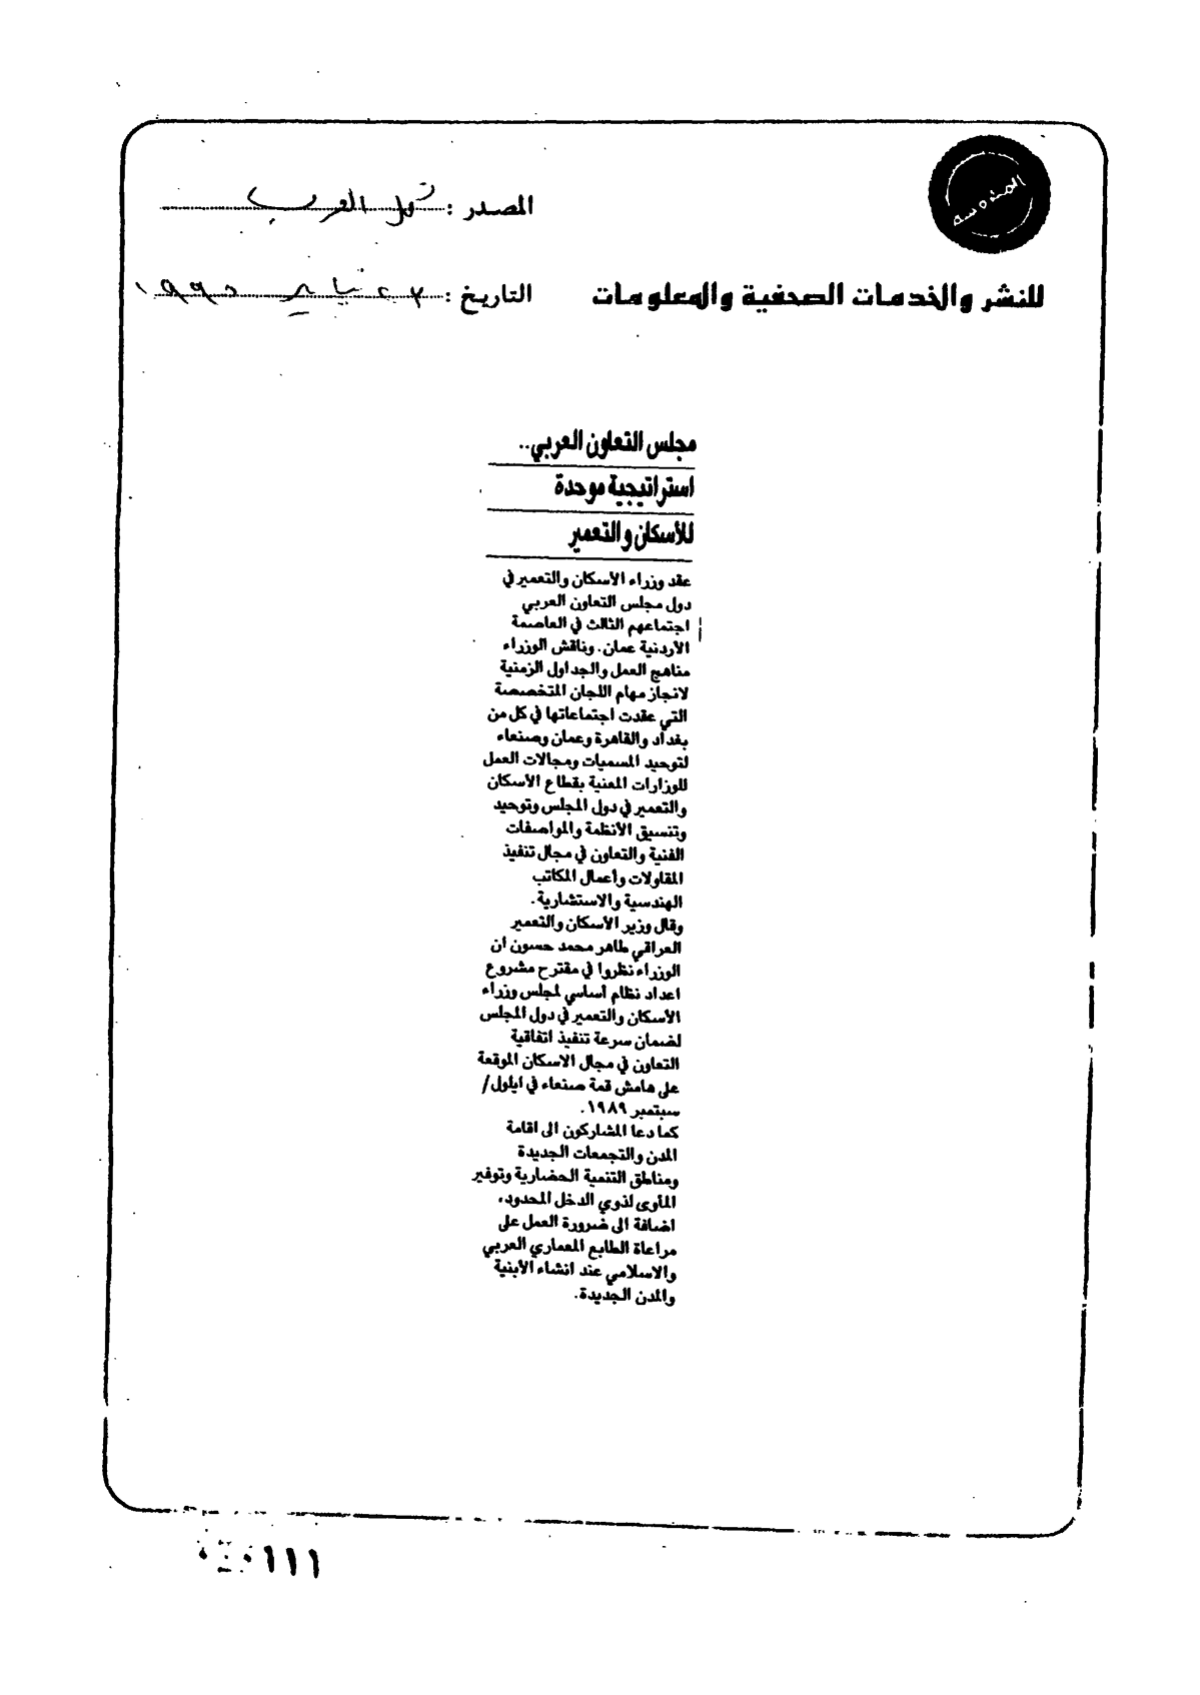 المصدر : كل العرب
للنشر والخدمات الصحفية والمعلومات
التاريخ : ٢٣ يناير ١٩٩٠
مجلس التعاون العربي..
استراتيجية موحدة
للأسكان والتعمير
عقد وزراء الأسكان والتعمير في
دول مجلس التعاون العربي
اجتماعهم الثالث في العاصمة
الأردنية عمان. وناقش الوزراء
مناهج العمل والجداول الزمنية
لانجاز مهام اللجان المتخصصة
التي عقدت اجتماعاتها في كل من
بغداد والقاهرة وعمان وصنعاء
لتوحيد المسميات ومجالات العمل
للوزارات المعنية بقطاع الأسكان
والتعمير في دول المجلس وتوحيد
وتنسيق الأنظمة والمواصفات
الفنية والتعاون في مجال تنفيذ
المقاولات وأعمال المكاتب
الهندسية والاستشارية.
وقال وزير الأسكان والتعمير
العراقي طاهر محمد حسون ان
الوزراء نظروا في مقترح مشروع
اعداد نظام أساسي لمجلس وزراء
الأسكان والتعمير في دول المجلس
لضمان سرعة تنفيذ اتفاقية
التعاون في مجال الاسكان الموقعة
على هامش قمة صنعاء في ايلول/
سبتمبر ١٩٨٩.
كما دعا المشاركون الى اقامة
المدن والتجمعات الجديدة
ومناطق التنمية الحضارية وتوفير
المأوى لذوي الدخل المحدود،
اضافة الى ضرورة العمل على
مراعاة الطابع المعماري العربي
والاسلامي عند انشاء الأبنية
والمدن الجديدة.
١١١